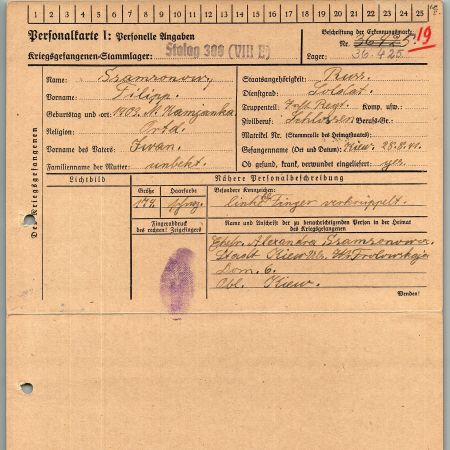 1 2 3 4 5 6 7 8 9 10 11 12 13 14 15 16 17 18 19 20 21 22 23 24 25
Personalkarte I: Personelle Angaben
Kriegsgefangenen-Stammlager: Stalag
Beschriftung der Erkennungsmarke
Nr. 36425. 19
Lager: 36.425.
Des Kriegsgefangenen
Name: Szamronow,
Vorname: Filipp.
Geburtstag und -ort: Kamjanka
Religion: Ortd.
Vorname des Vaters: Iwan.
Familienname der Mutter: unbekt.
Staatsangehörigkeit: Russ.
Dienstgrad: Soldat.
Truppenteil: Inft. Regt. Komp. usw.:
Zivilberuf: Schlosser Berufs-Gr.:
Matrikel Nr. (Stammrolle des Heimatstaates):
Gefangennahme (Ort und Datum): Kiew.
Ob gesund, krank, verwundet eingeliefert: ges.
Lichtbild
Nähere Personalbeschreibung
Größe
Haarfarbe
Besondere Kennzeichen:
174
schwz.
Finger verkrüppelt.
Fingerabdruck
des rechten! Zeigefingers
Name und Anschrift der zu benachrichtigenden Person in der Heimat
des Kriegsgefangenen
Ehefr. Alexandra Szamronowa.
Stadt Kiew Frolowskaja
Dom. 6.
Obl. Kiew.
Wenden!